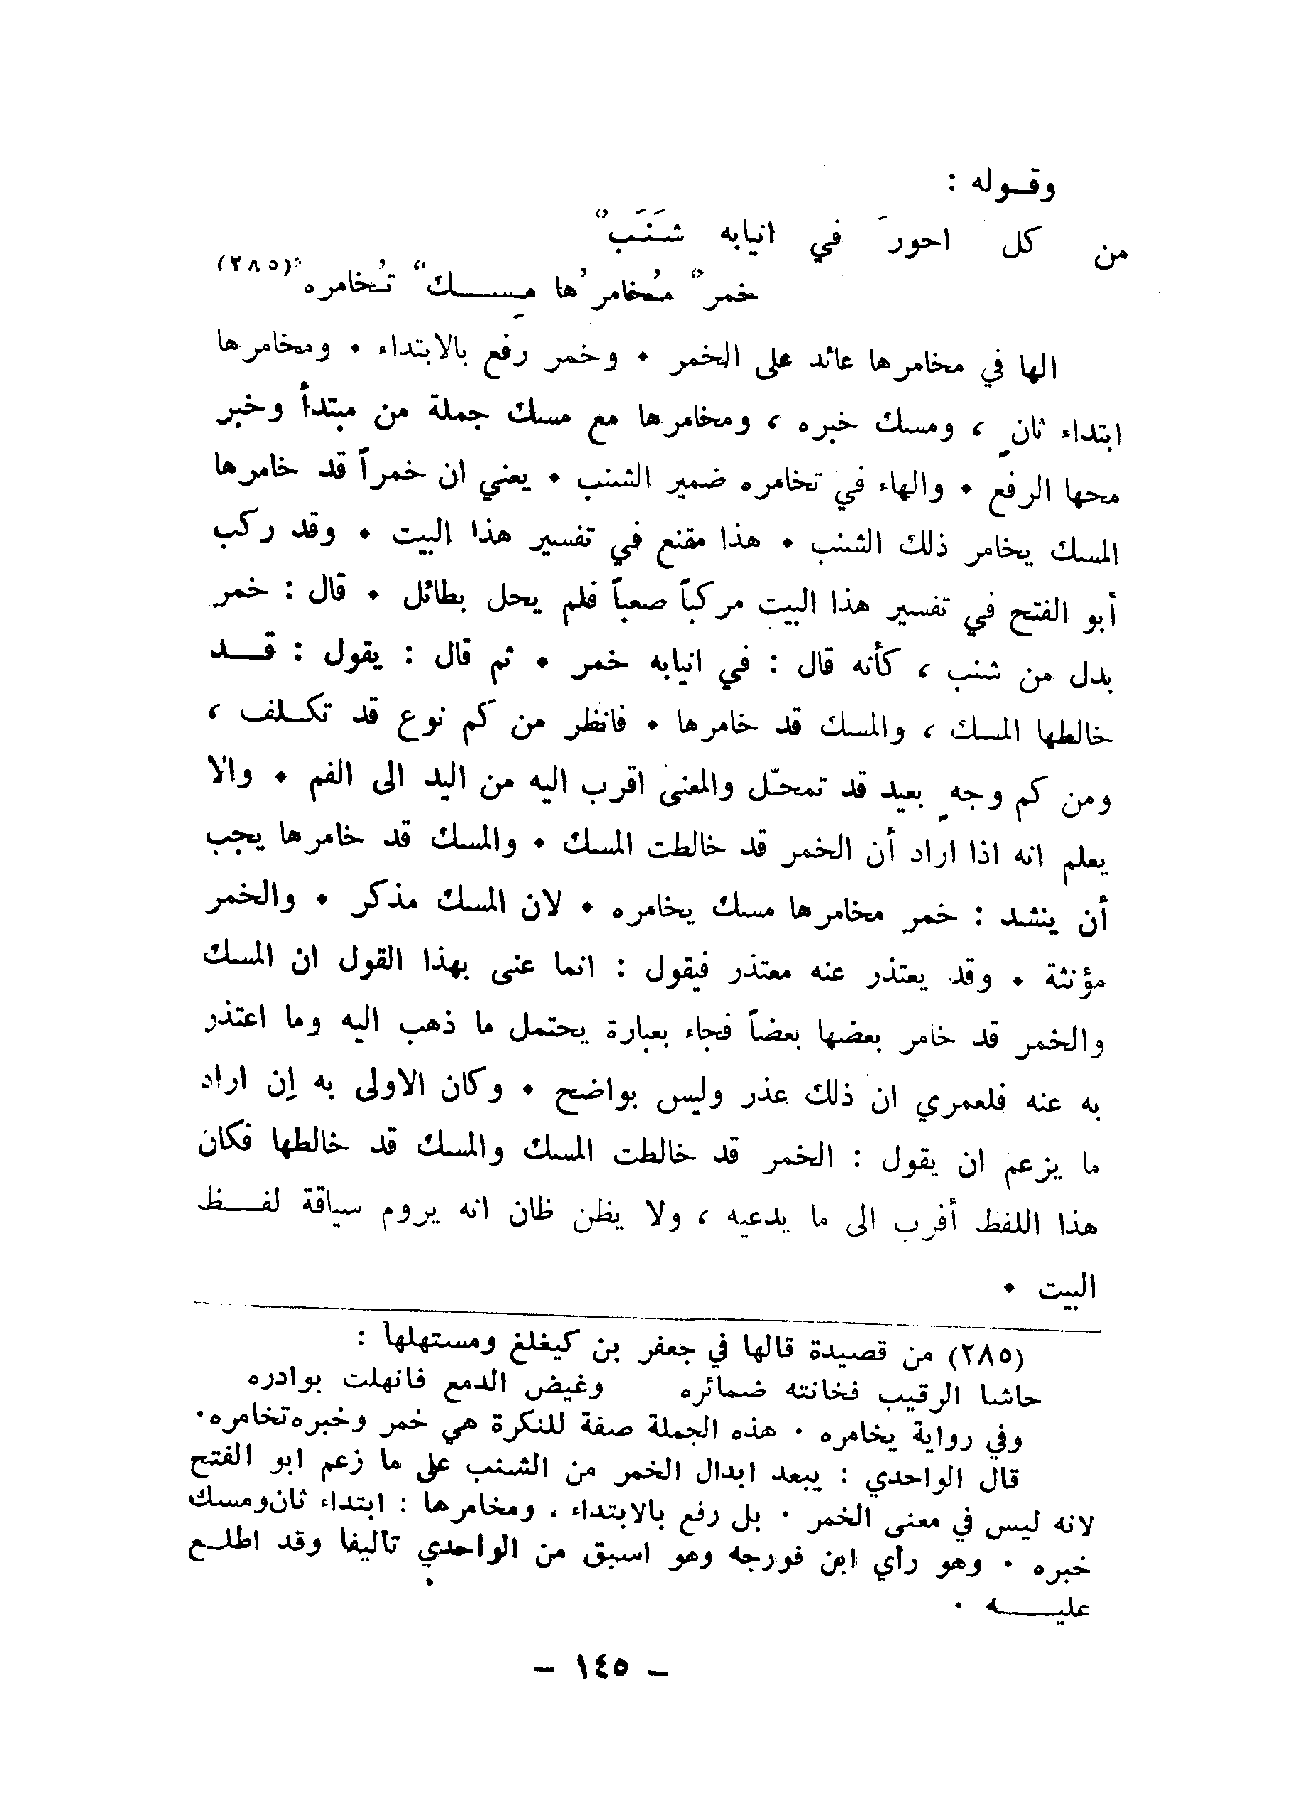 وقوله :
من كل احورَ في انيابه شَنَبٌ
خمرٌ مُخامرُها مِسكٌ تُخامره (٢٨٥)
الها في مخامرها عائد على الخمر • وخمر رفع بالابتداء • ومخامرها
ابتداء ثانٍ ، ومسك خبره ، ومخامرها مع مسك جملة من مبتدأ وخبر
محها الرفع • والهاء في تخامره ضمير الشنب • يعني ان خمراً قد خامرها
المسك يخامر ذلك الشنب • هذا مقنع في تفسير هذا البيت • وقد ركب
أبو الفتح في تفسير هذا البيت مركباً صعباً فلم يحل بطائل • قال : خمر
بدل من شنب ، كأنه قال : في انيابه خمر • ثم قال : يقول : قد
خالطها المسك ، والمسك قد خامرها • فانظر من كم نوع قد تكلف ،
ومن كم وجهٍ بعيد قد تمحّل والمعنى اقرب اليه من اليد الى الفم • والا
يعلم انه اذا اراد أن الخمر قد خالطت المسك • والمسك قد خامرها يجب
أن ينشد : خمر مخامرها مسك يخامره • لان المسك مذكر • والخمر
مؤنثة • وقد يعتذر عنه معتذر فيقول : انما عنى بهذا القول ان المسك
والخمر قد خامر بعضها بعضاً فجاء بعبارة يحتمل ما ذهب اليه وما اعتذر
به عنه فلعمري ان ذلك عذر وليس بواضح • وكان الاولى به إن اراد
ما يزعم ان يقول : الخمر قد خالطت المسك والمسك قد خالطها فكان
هذا اللفظ أقرب الى ما يدعيه ، ولا يظن ظان انه يروم سياقة لفظ
البيت •
(٢٨٥) من قصيدة قالها في جعفر بن كيغلغ ومستهلها :
حاشا الرقيب فخانته ضمائره وغيض الدمع فانهلت بوادره
وفي رواية يخامره • هذه الجملة صفة للنكرة هي خمر وخبره تخامره •
قال الواحدي : يبعد ابدال الخمر من الشنب على ما زعم ابو الفتح
لانه ليس في معنى الخمر • بل رفع بالابتداء . ومخامرها : ابتداء ثان ومسك
خبره • وهو رأي ابن فورجه وهو اسبق من الواحدي تأليفا وقد اطلع
عليه •
– ١٤٥ –